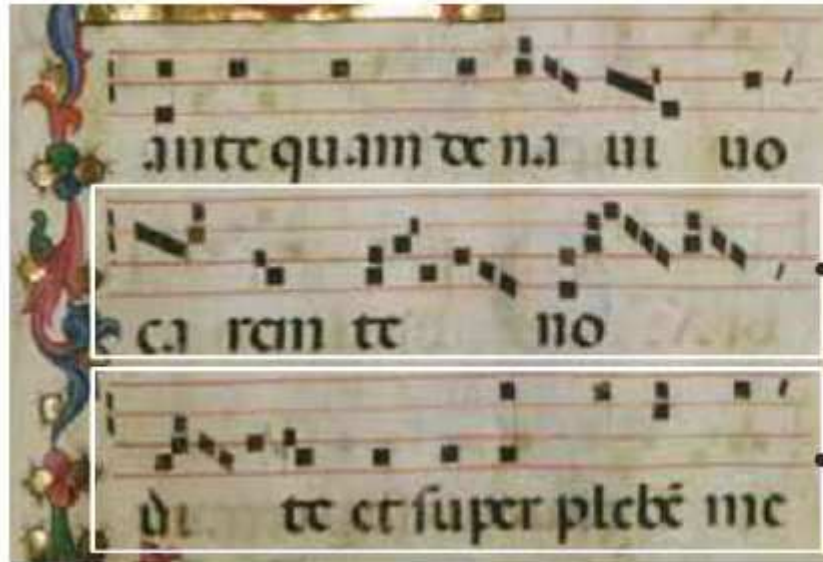 ante quam de na ui uo
ca rem te no
di te et super plebē me